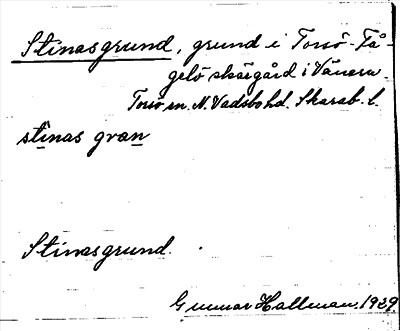 Stinasgrund, grund i Torsö-Få-
gelö skärgård i Vänern.
Torsö sn. N. Vadsbo hd. Skarab. l.
stinas gran
Stinasgrund.
Gunnar Hallman. 1929